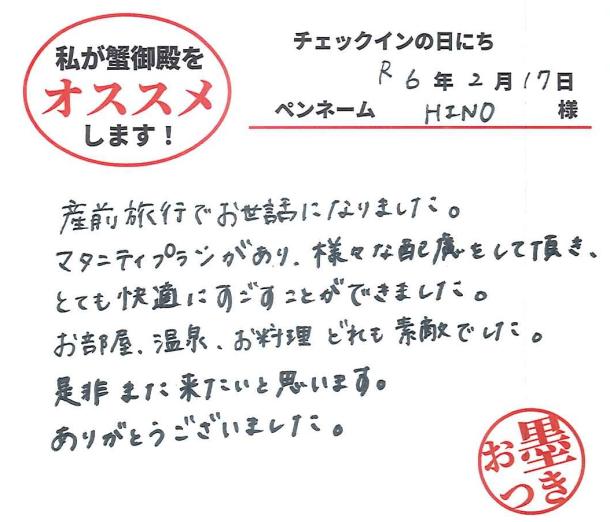 私が蟹御殿を
オススメ
します！
チェックインの日にち
R6年2月17日
ペンネーム HINO 様
産前旅行でお世話になりました。
マタニティプランがあり、様々な配慮をして頂き、
とても快適にすごすことができました。
お部屋、温泉、お料理 どれも素敵でした。
是非また来たいと思います。
ありがとうございました。
お墨つき